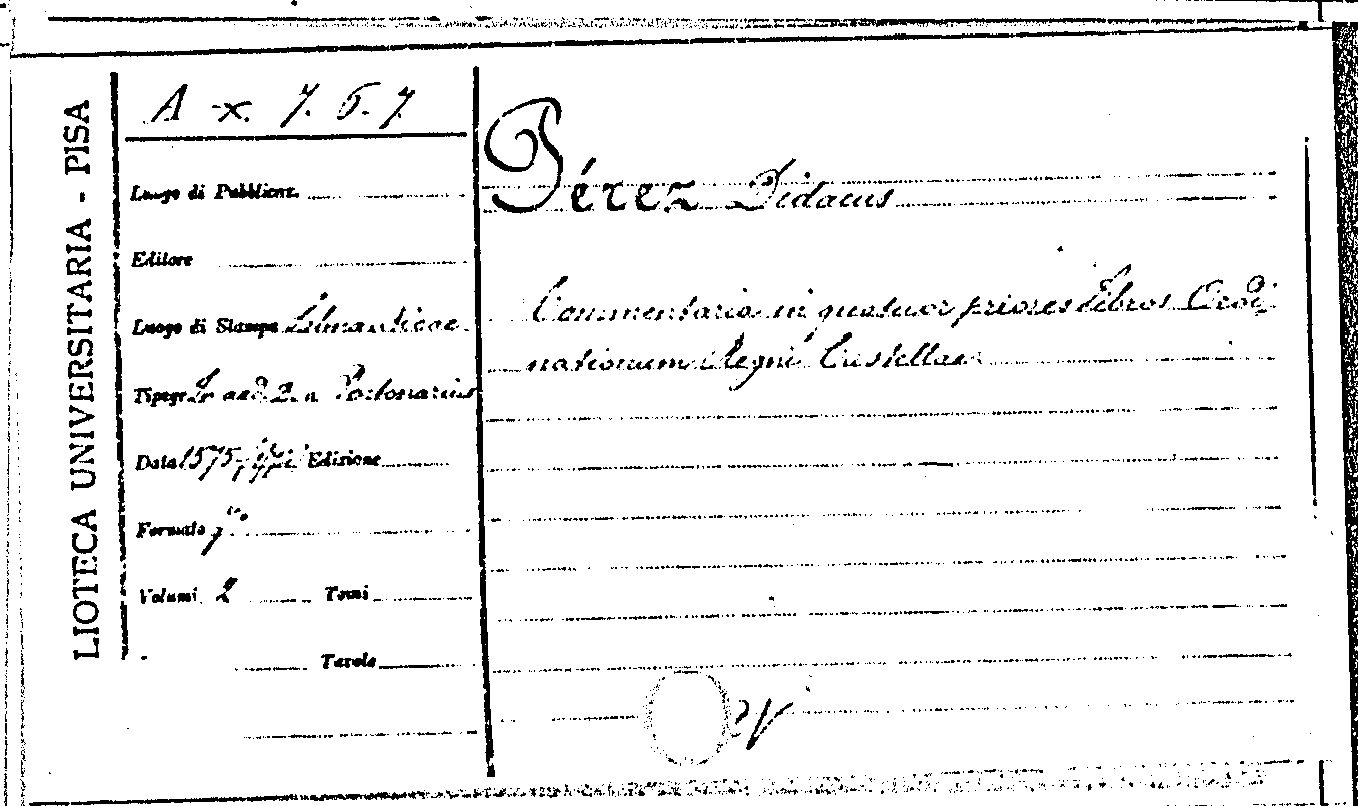 LIOTECA UNIVERSITARIA - PISA
A x. 7. 6. 7
Luogo di Pubblicaz.
Editore
Luogo di Stampa
Tipogr. Portonariis
Data 1575 Edizione
Formato fº
Volumi 2 Tomi
Tavole
Pérez Didacus
Commentaria in quatuor priores libros Ordi
nationum Regni Castellae